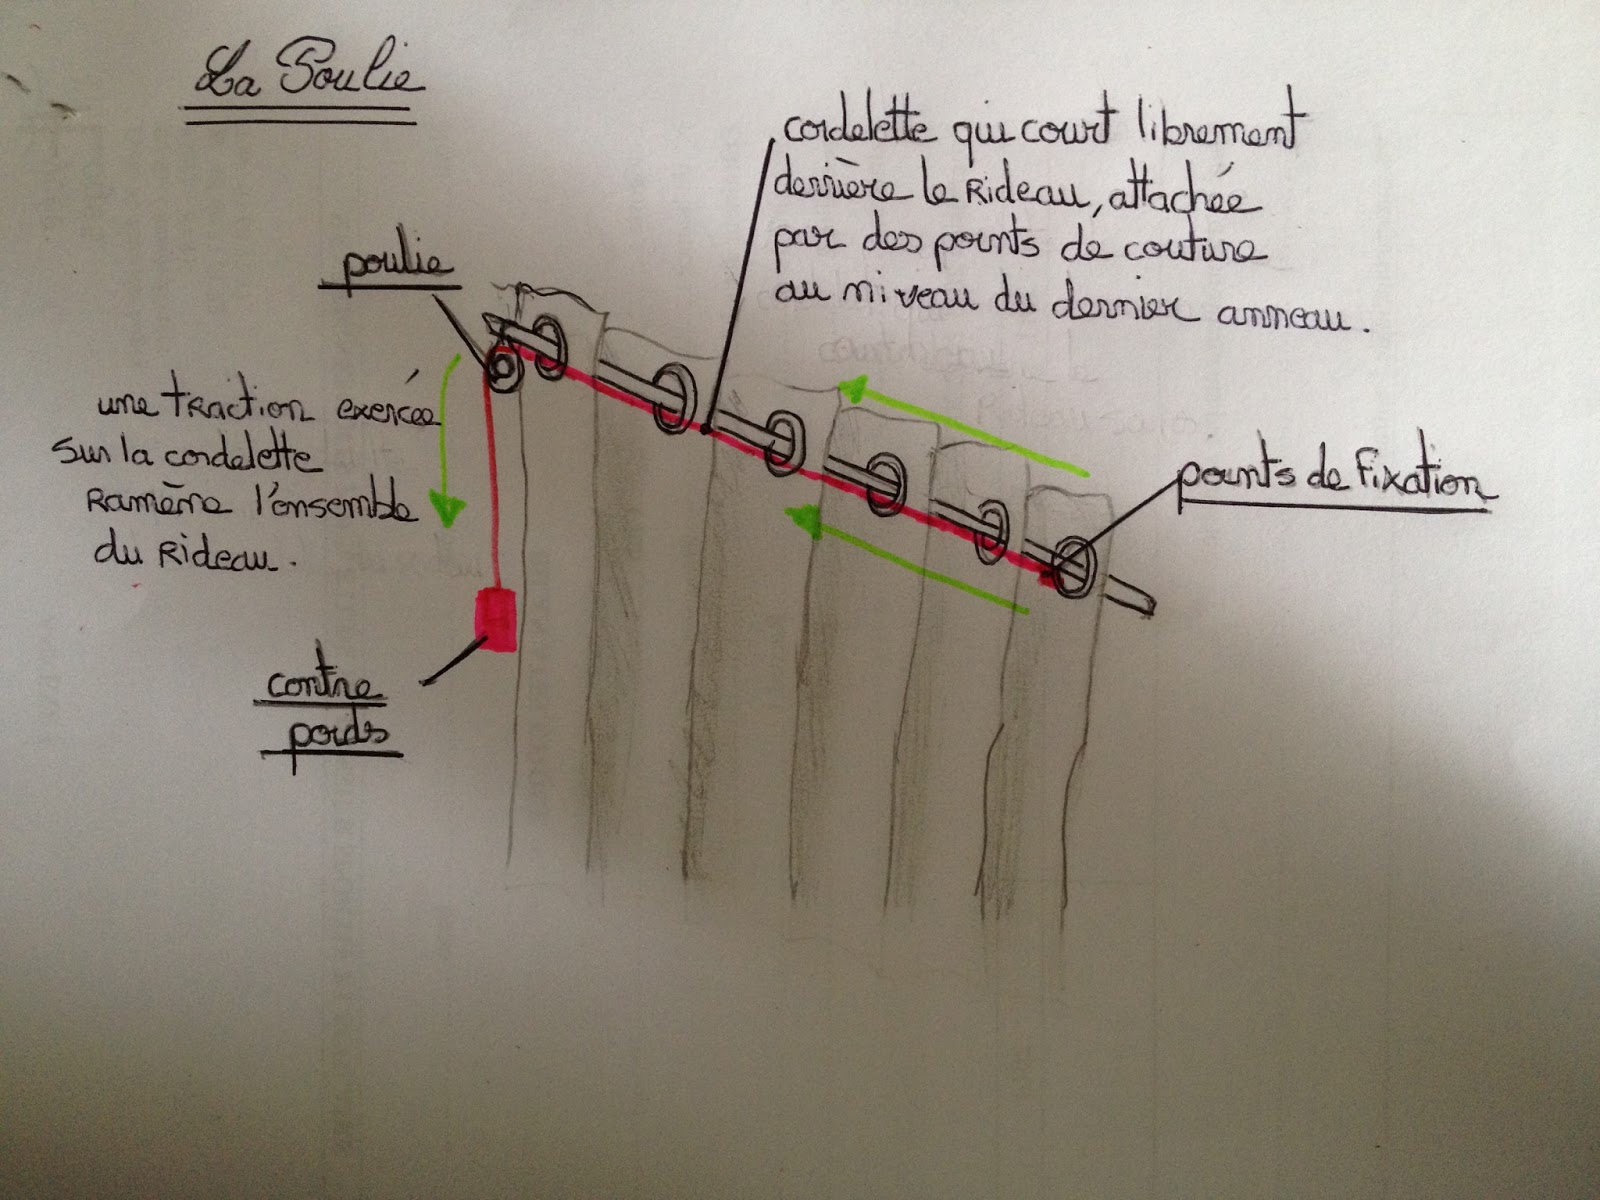 La Poulie
cordelette qui court librement
derrière le Rideau, attachée
par des points de couture
au niveau du dernier anneau.
poulie
une traction exercée
sur la cordelette
Ramène l'ensemble
du Rideau.
points de Fixation
contre
poids